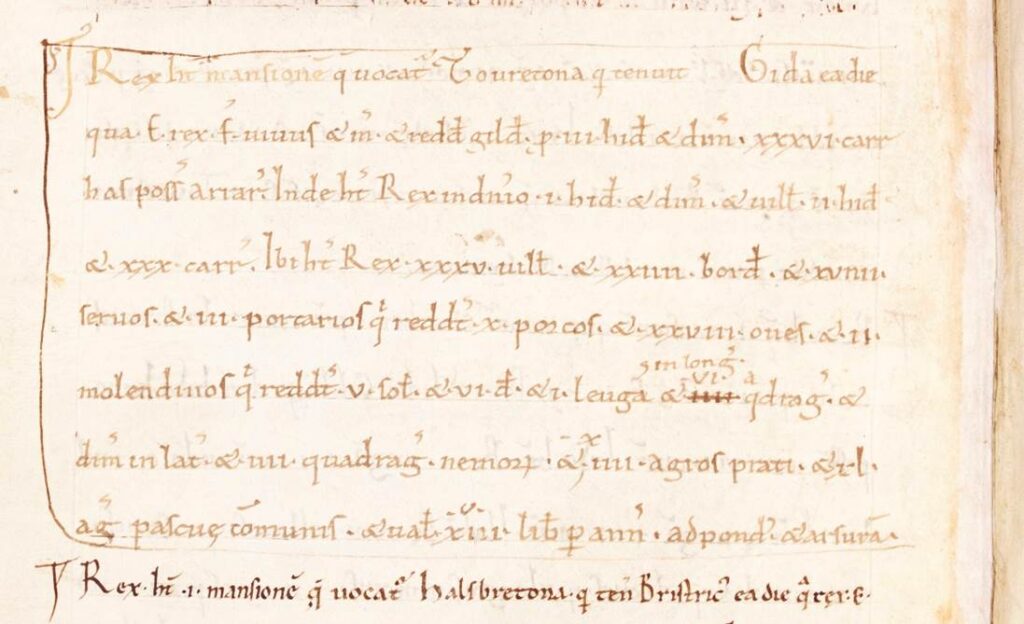 Rex ht̄ mansionē q̄ uocat᷑ Touretona q̄ tenuit Gida ea die
qua .E. rex .f. uiuus & m̄. & redđ gilđ. ꝑ .iii. hiđ & dim̄. xxxvi. carr̄
has poss̄ arrar᷑. Inde ht̄ Rex in dn̄io .i. hiđ. & dim̄. & uill̄. ii. hiđ
& .xxx. carr̄. Ibi ht̄ Rex .xxxv. uill̄. & .xxiiii. borđ. & .xviiii.
seruos. & .iii. porcarios q̄ reddt̄ .x. porcos. & .xxviii. oues. & .ii.
molendinos q̄ reddt̄ .v. sol̄. & .vi. đ. & .i. leugā in lonḡ. & .vi. qdraḡ. &
dim̄ in lat̄. & .iiii. quadraḡ. nemoꝝ. & agros prati. & .l.
aḡ pascuę cōmunis. & ual̄ lib̄ ꝑ ann̄. ad pond᷑. & arsurā.
Rex. ht̄ .i. mansionē q̄ uocat᷑ halsbretona. q̄ ten̄ Bristric᷑ ea die q̄ rex .E.